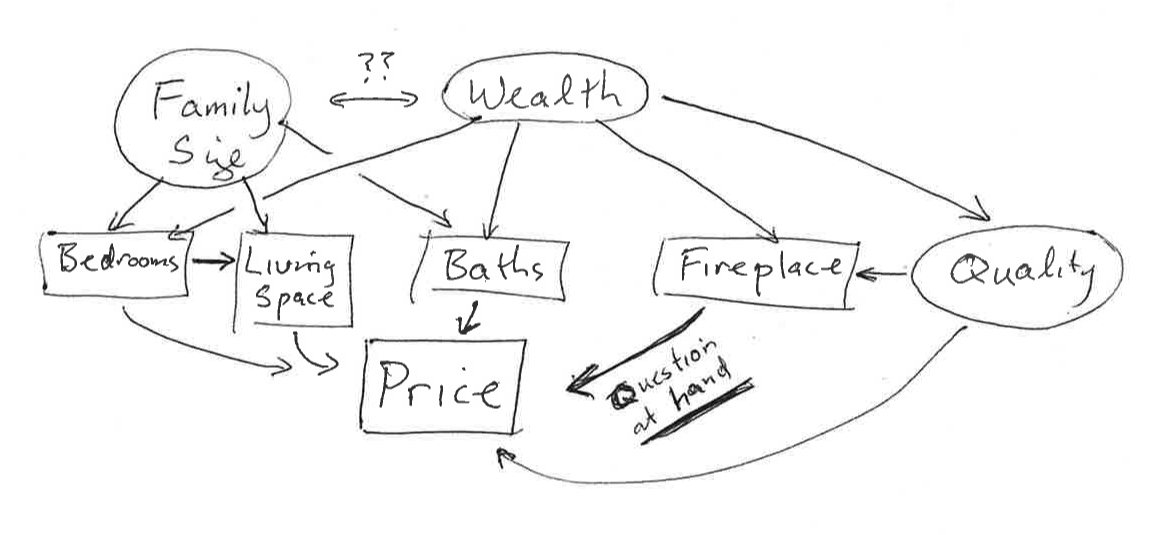 ??
Family
Size
Wealth
Bedrooms
Living
Space
Baths
Fireplace
Quality
Price
Question
at hand